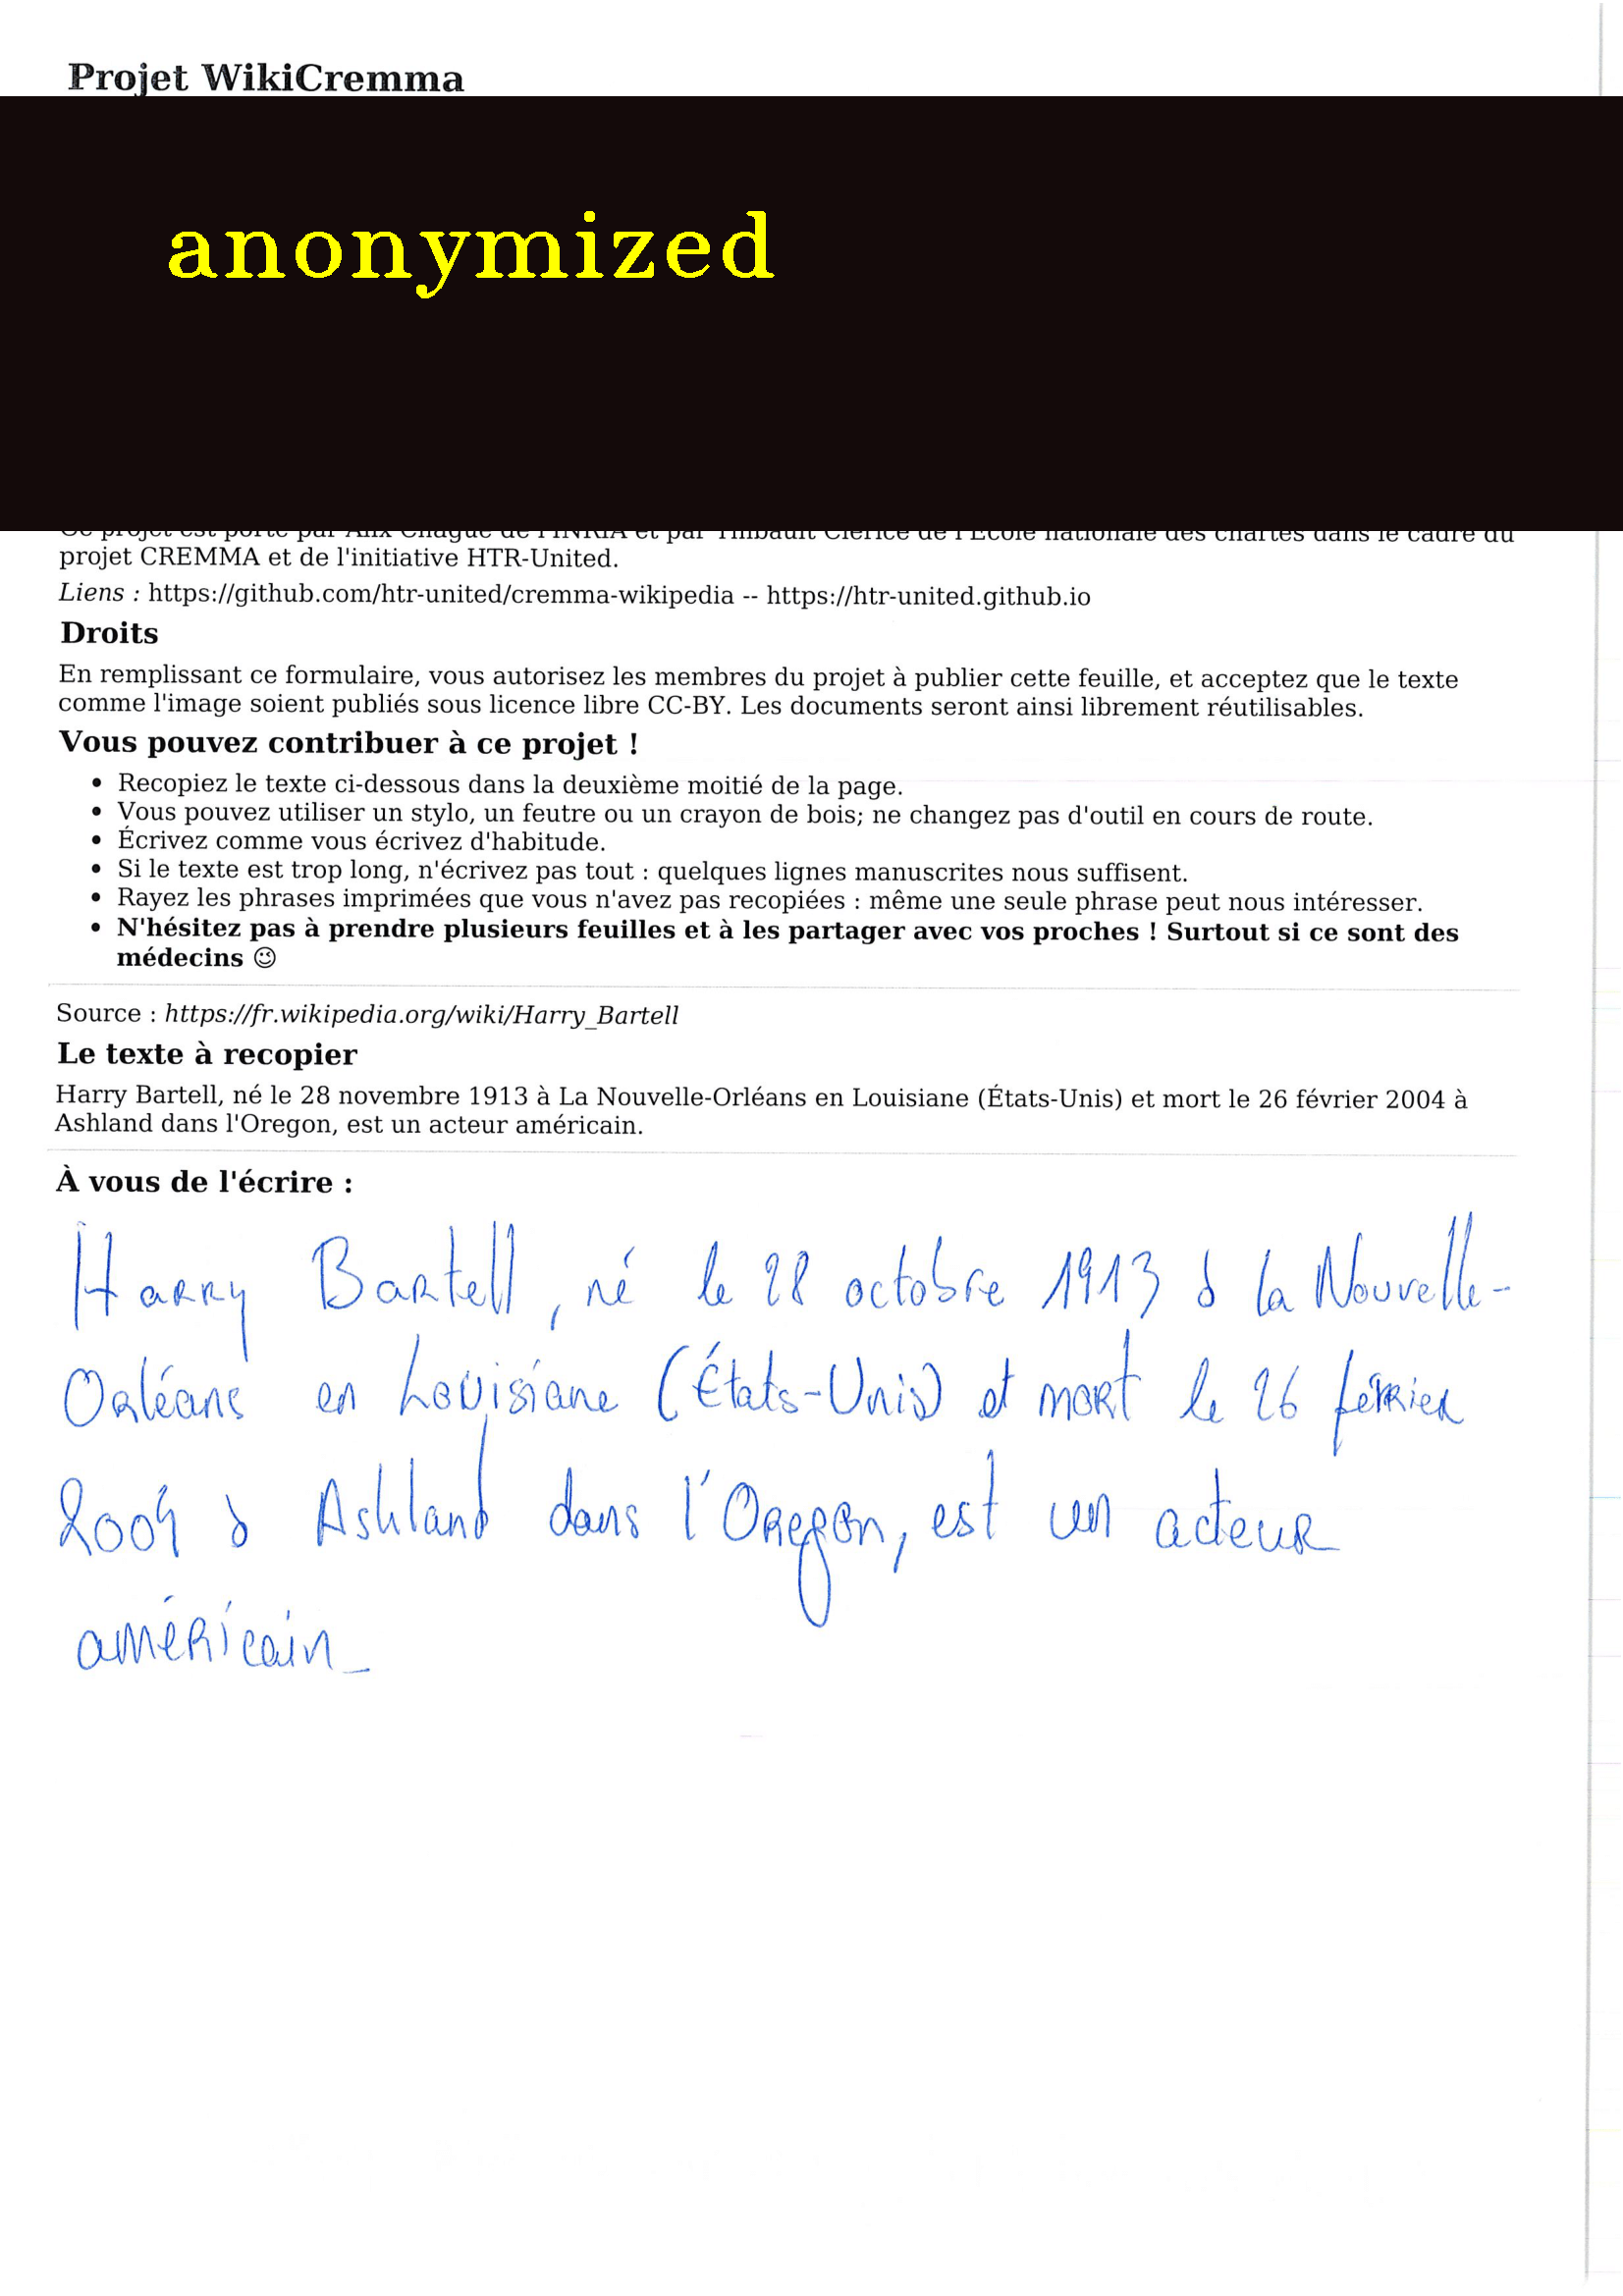 Projet WikiCremma
anonymized
Ce projet est porté par Alix Chagué de l'INRIA et par Thibault Clérice de l'École nationale des chartes dans le cadre du
projet CREMMA et de l'initiative HTR-United.
Liens : https://github.com/htr-united/cremma-wikipedia -- https://htr-united.github.io
Droits
En remplissant ce formulaire, vous autorisez les membres du projet à publier cette feuille, et acceptez que le texte
comme l'image soient publiés sous licence libre CC-BY. Les documents seront ainsi librement réutilisables.
Vous pouvez contribuer à ce projet !
• Recopiez le texte ci-dessous dans la deuxième moitié de la page.
• Vous pouvez utiliser un stylo, un feutre ou un crayon de bois; ne changez pas d'outil en cours de route.
• Écrivez comme vous écrivez d'habitude.
• Si le texte est trop long, n'écrivez pas tout : quelques lignes manuscrites nous suffisent.
• Rayez les phrases imprimées que vous n'avez pas recopiées : même une seule phrase peut nous intéresser.
• N'hésitez pas à prendre plusieurs feuilles et à les partager avec vos proches ! Surtout si ce sont des
médecins 😉
Source : https://fr.wikipedia.org/wiki/Harry_Bartell
Le texte à recopier
Harry Bartell, né le 28 novembre 1913 à La Nouvelle-Orléans en Louisiane (États-Unis) et mort le 26 février 2004 à
Ashland dans l'Oregon, est un acteur américain.
À vous de l'écrire :
Harry Bartell, né le 28 octobre 1913 à la Nouvelle-
Orléans en Louisiane (États-Unis) et mort le 26 février
2004 à Ashland dans l'Oregon, est un acteur
américain.